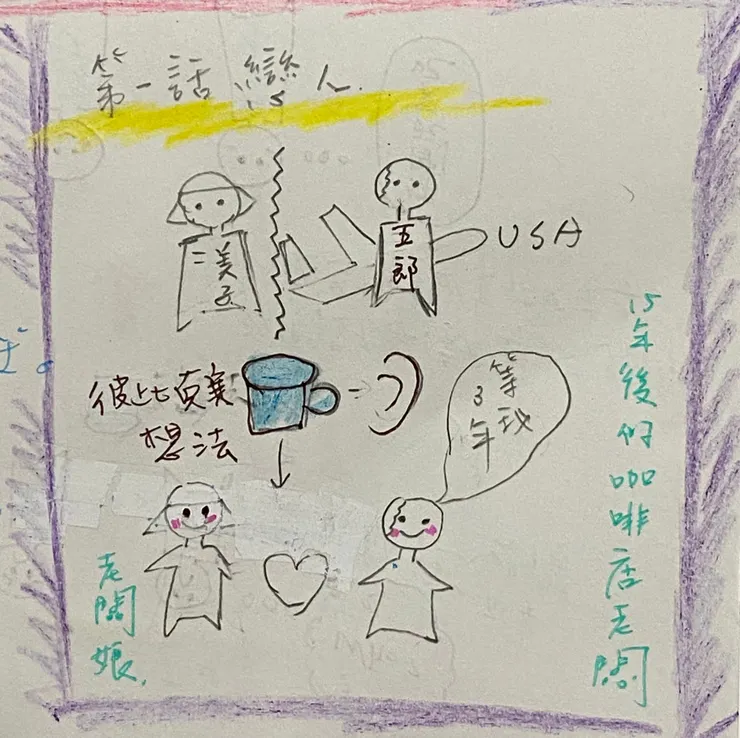 第一話 戀人
二美子
五郎
USA
彼此真實
想法
等我
3年
老闆娘
15年後的咖啡店老闆